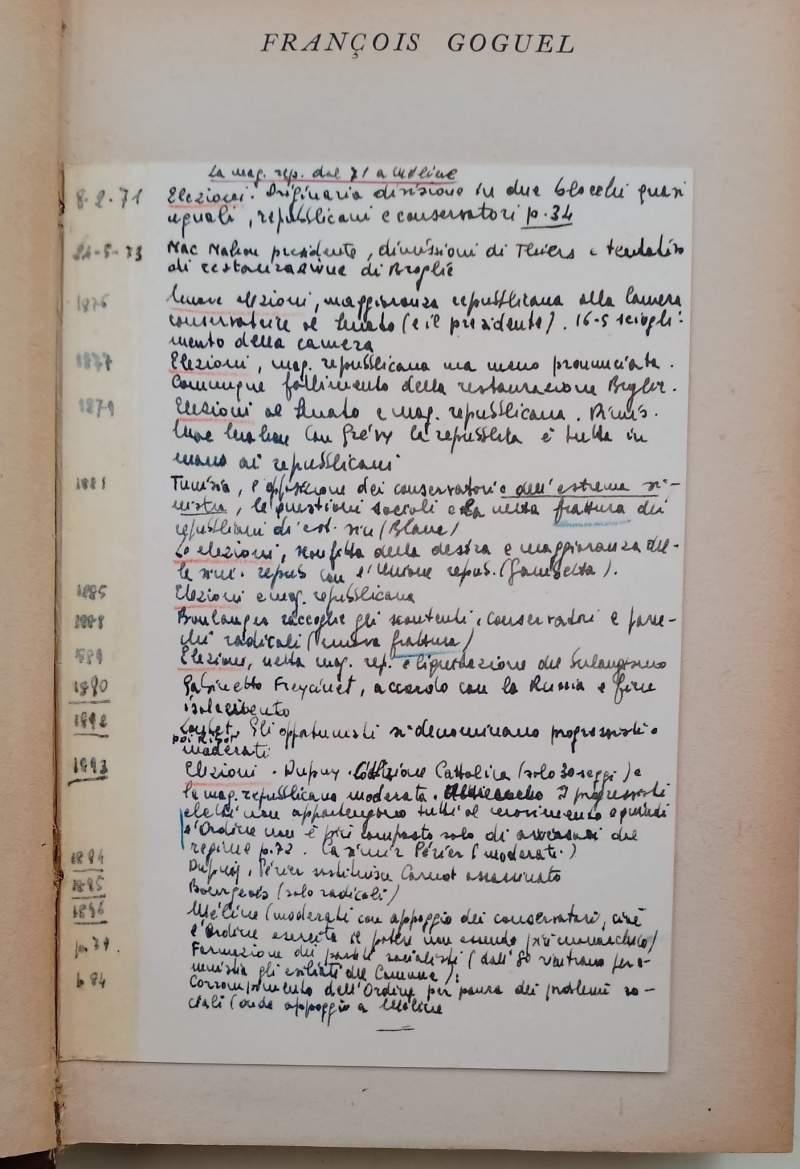 FRANÇOIS GOGUEL
La mag. rep. dal 71 a Méline
8-2-71 Elezioni. Originaria divisione in due blocchi quasi
uguali, repubblicani e conservatori p. 34
24-5-73 Mac Mahon presidente, dimissioni di Thiers e tentativo
di restaurazione di Broglie
1876 Nuove elezioni, maggioranza repubblicana alla Camera
conservatrice al Senato (e il presidente). 16-5 sciogli-
mento della camera
1877 Elezioni, mag. repubblicana ma meno pronunciata.
Comunque fallimento della restaurazione
1879 Elezioni al Senato e mag. repubblicana. Dimis.
Mac Mahon Con Grévy la repubblica è tutta in
mano ai repubblicani
1881 Tunisia, l'opposizione dei conservatori e dell'estrema si-
nistra, le questioni e la netta frattura dei
repubblicani di est. sin (
Le elezioni, sconfitta della destra e maggioranza del-
le sin. repub con l'Unione repub. (Gambetta).
1885 Elezioni e mag. repubblicana
1888 Boulanger raccoglie gli scontenti, conservatori e parec-
chi radicali (nuova frattura)
889 Elezione, netta mag. rep. e liquidazione del
1890 Gabinetto Freycinet, accordo con la Russia e fine
isolamento
1892 Loubet. Gli opportunisti si denominano progressisti o
poi Ribot
moderati
1893 Elezioni. Dupuy. Cattolica (solo 30 seggi) e
la mag. repubblicana moderata. I progressisti
eletti non appartengono tutti al movimento e quindi
l'Ordine non è più composto solo di avversari del
regime p. 72. Casimir Périer (moderati)
1894 Dupuy, Périer sostituisce Carnot assassinato
1895 Bourgeois (solo radicali)
1896 Méline (moderati con appoggio dei conservatori, cioè
l'Ordine esercita il potere non essendo più monarchico)
p. 79. Formazione dei partiti socialisti (dall'80 rientrano per a-
mnistia gli esiliati del Comune);
p 84 dell'Ordine per paura dei problemi so-
ciali (onde appoggio a Méline